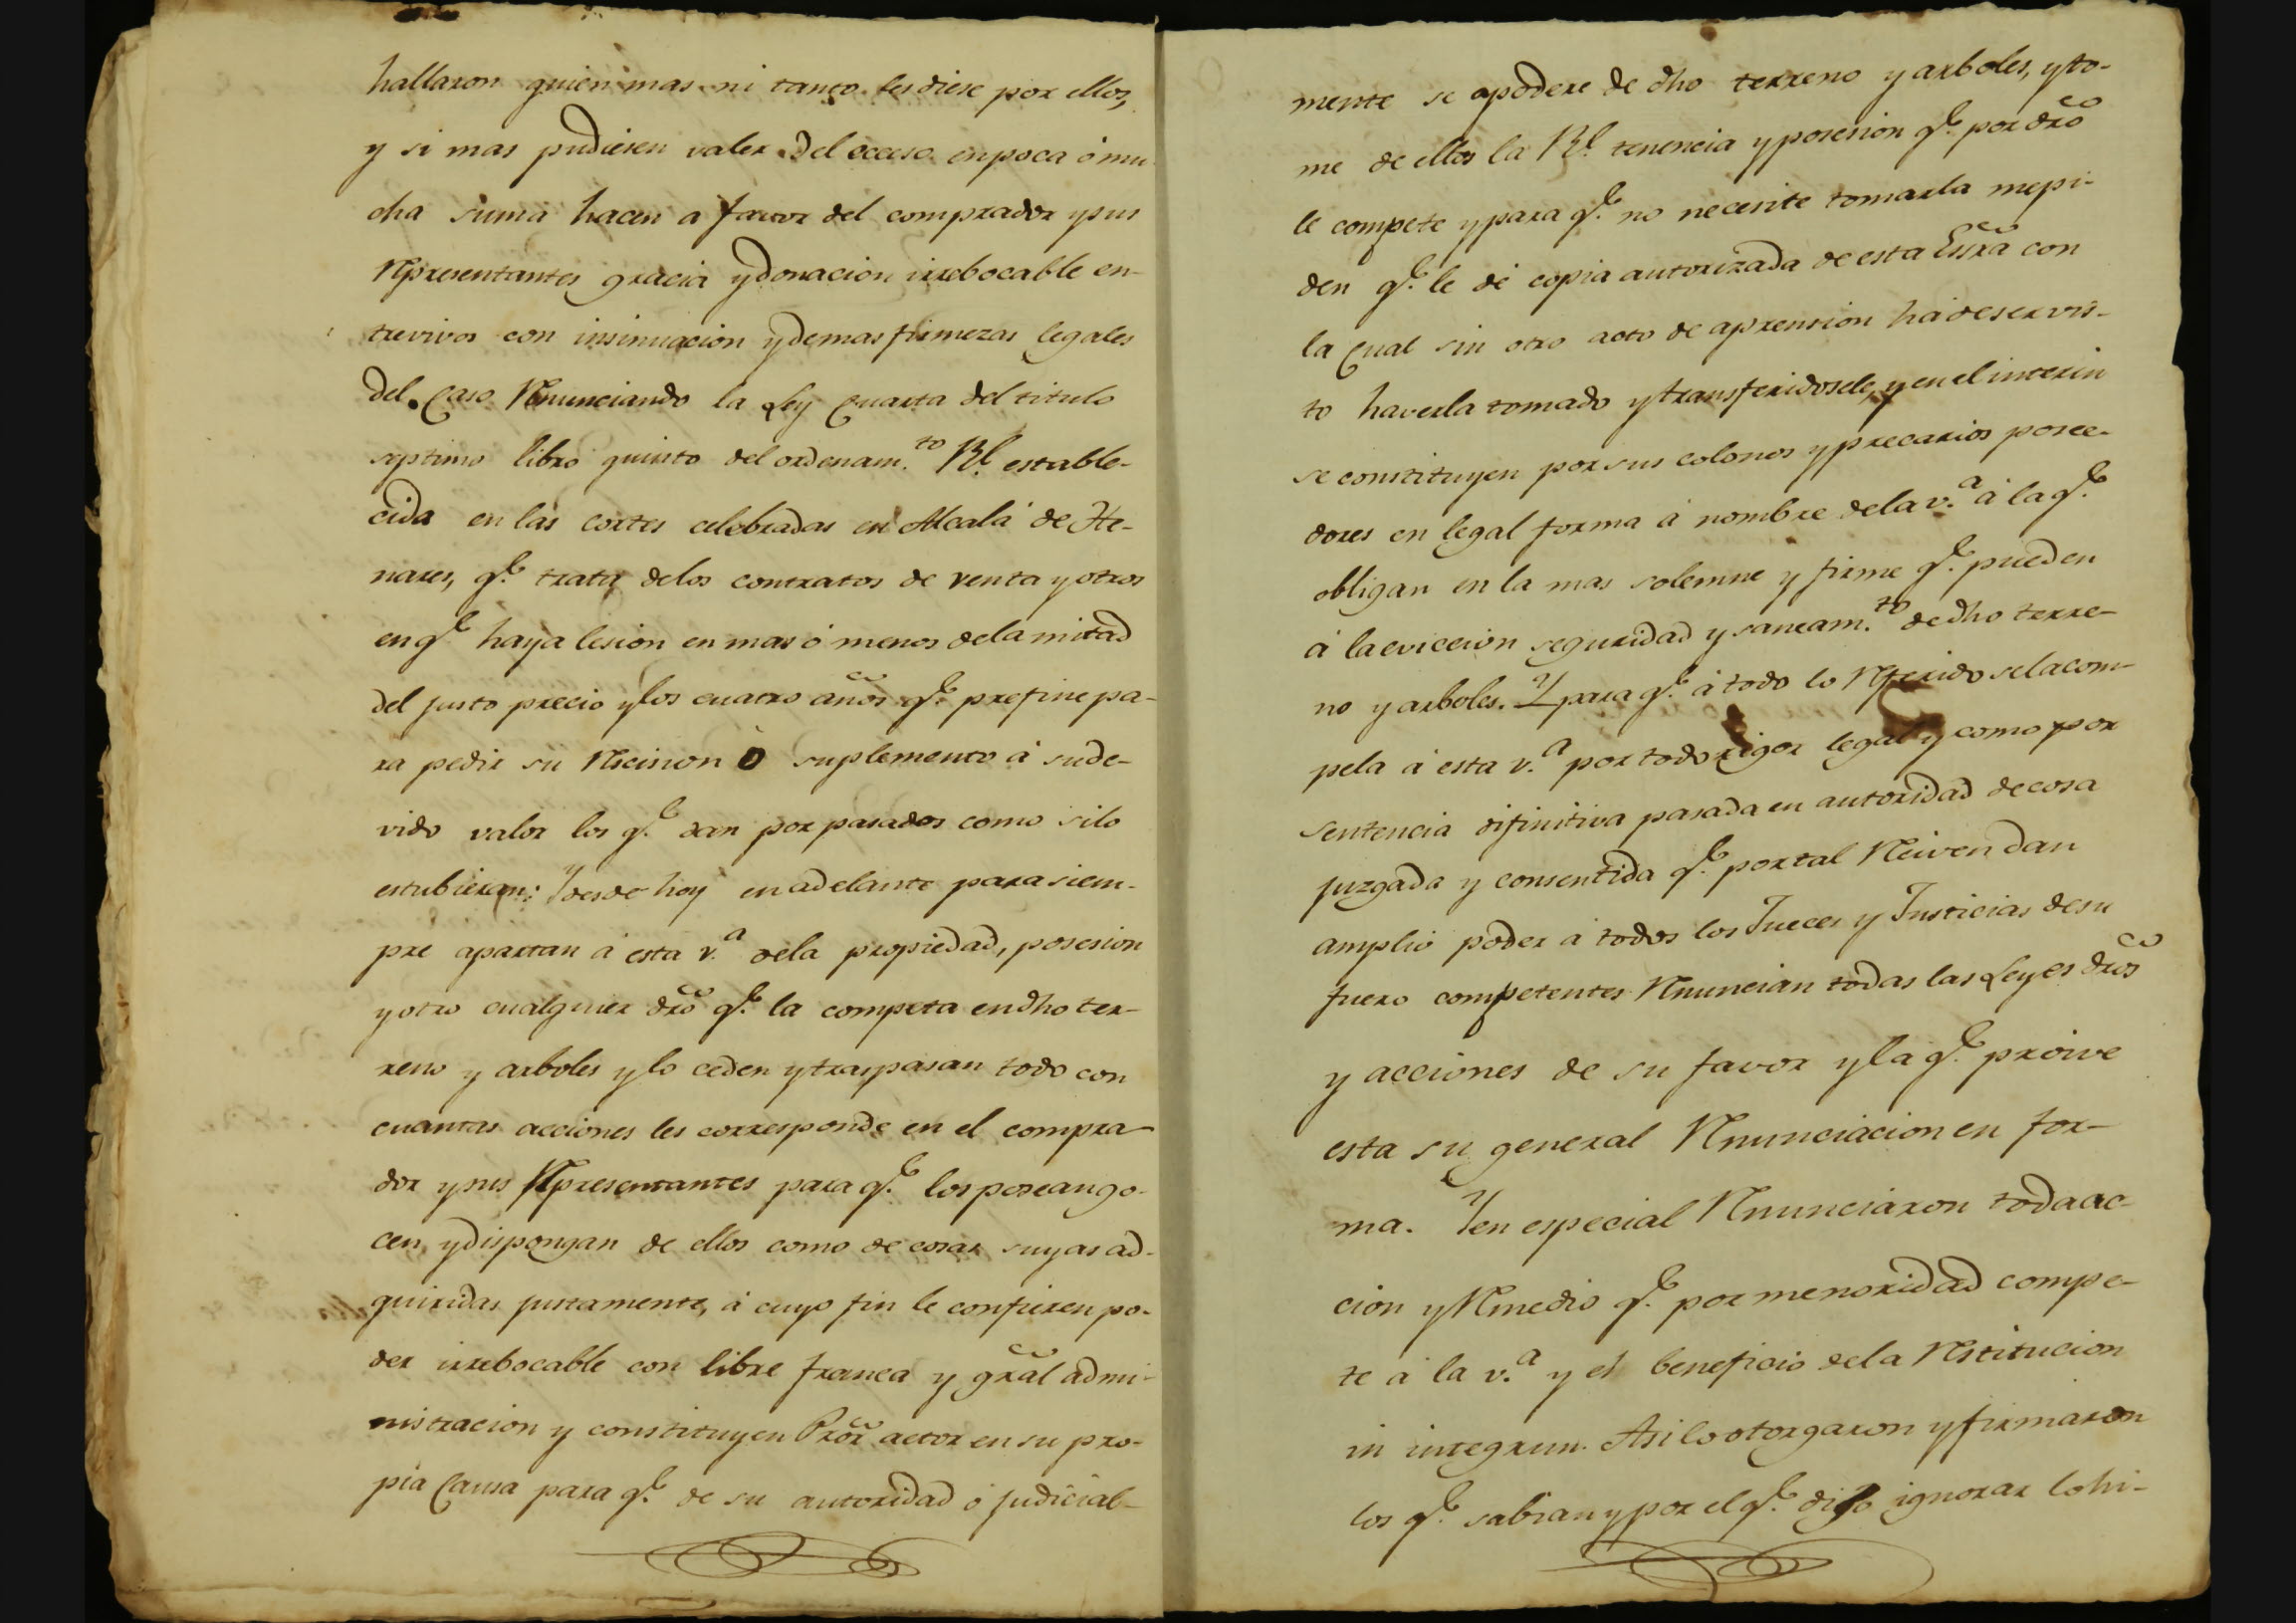 hallaron quien mas ni tanto les diese por ellos,
y si mas pudiesen valer del ecceso en poca ó mu
cha suma hacen a favor del comprador y sus
Representantes gracia y donacion irrebocable en-
trevivos con insinuacion y demas firmezas legales
del Caso Renunciando la Ley Cuarta del titulo
septimo libro quinto del ordenam.to Rl. estable-
cida en las cortes celebradas en Alcalá de He-
nares, q.e trata delos contratos de venta y otros
en q.e haya lesion en mas ó menos dela mitad
del justo precio y los cuatro años q.e prefine pa-
ra pedir su Recision ó suplemento á sude-
vido valor los q.e dan por pasados como silo
estubieran: Y desde hoy en adelante para siem-
pre apartan á esta v.a dela propiedad, posesion
y otro cualquier dro q.e la competa en dho ter-
reno y arboles y lo ceden y traspasan todo con
cuantas acciones les corresponde en el compra-
dor y sus Representantes para q.e los posean go-
cen, y dispongan de ellos como de cosas suyas ad-
quiridas justamente, á cuyo fin le confieren po-
der irrebocable con libre franca y gral admi-
nistracion y constituyen Pror actor en su pro-
pia Causa para q.e de su autoridad ó judicial-
mente se apodere de dho terreno y arboles, y to-
me de ellos la Rl. tenencia y posesion q.e por dro
le compete y para q.e no necesite tomarla mepi-
den q.e le dé copia autorizada de esta Essra con
la Cual sin otro acto de aprension há deser vis-
to haverla tomado y transferidosele, y en el interin
se constituyen por sus colonos y precarios posee-
dores en legal forma á nombre dela v.a á la q.e
obligan en la mas solemne y firme q.e pueden
á la eviccion seguridad y saneam.to de dho terre-
no y arboles. Y para q.e á todo lo Referido sela com-
pela á esta v.a por todo rigor legal y como por
sentencia difinitiva pasada en autoridad de cosa
juzgada y consentida q.e por tal Reciven dan
amplio poder á todos los Jueces y Justicias desu
fuero competentes Renuncian todas las Leyes dros
y acciones de su favor y la q.e proive
esta su general Renunciacion en for-
ma. Y en especial Renunciaron toda ac-
cion y Remedio q.e por menoridad compe-
te á la v.a y el beneficio dela Restitucion
in integrun. Asi lo otorgaron y firmaron
los q.e sabian y por el q.e dijo ignorar lo hi-